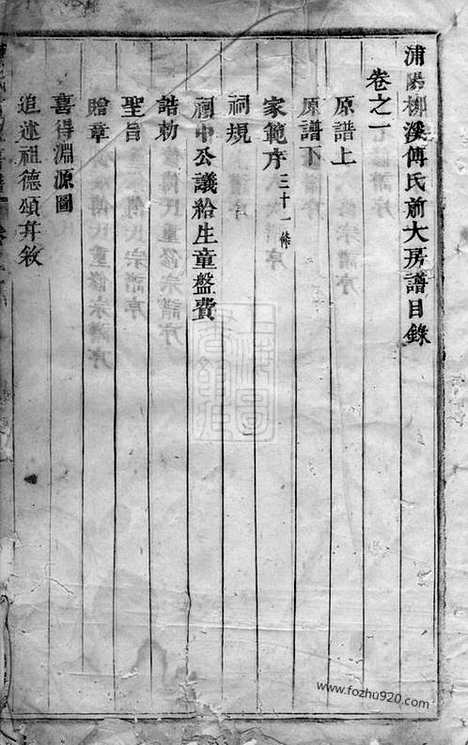 浦陽柳溪傅氏前大房譜目錄
卷之一
原譜上
原譜下
家範序三十一條
祠規
祠中公議給生童盤費
誥勅
聖旨
贈章
喜得淵源圖
追述祖德頌并敘
www.fozhu920.com